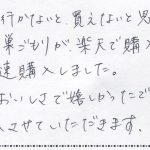 行かないと、買えないと思
巣ごもりが、楽天で購入
速購入しました。
おいしさで嬉しかったで
入させていただきます。